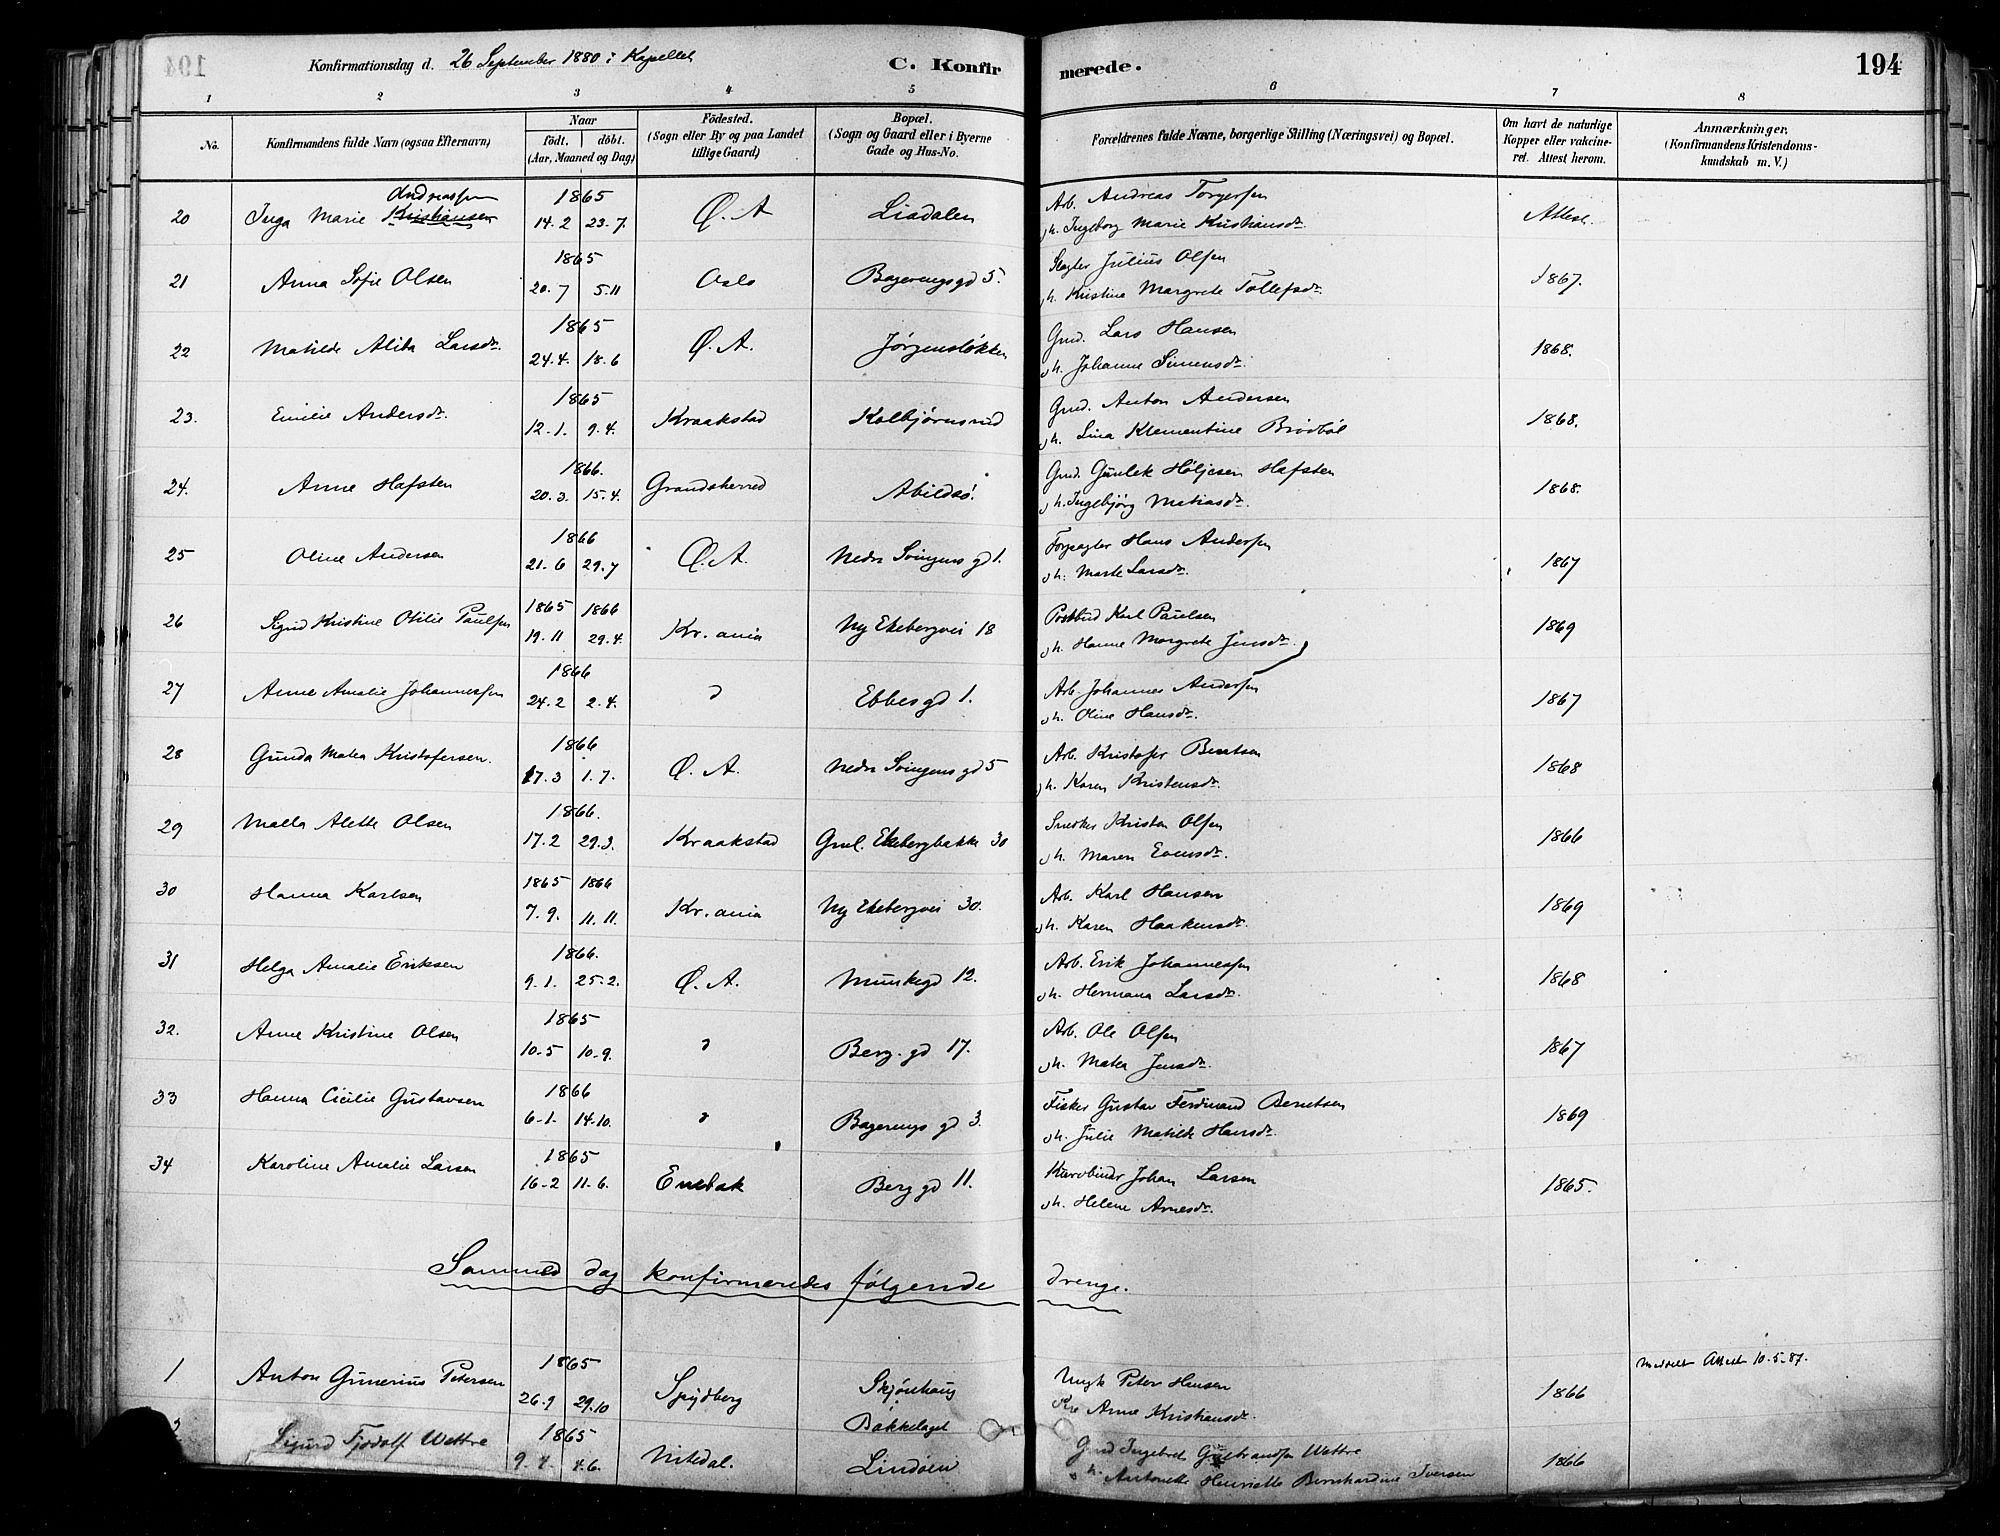 Konfirmationsdag d. 26 September 1880 i Kapellet C. Konfirmerede. 194
1 2 3 4 5 6 7 8
No. Konfirmandens fulde Navn (ogsaa Efternavn) Naar födt. döbt. (Aar, Maaned og Dag) Födested. (Sogn eller By og paa Landet tillige Gaard) Bopæl. (Sogn og Gaard eller i Byerne Gade og Hus-No. Forældrenes fulde Navne, borgerlige Stilling (Næringsvei) og Bopæl. Om havt de naturlige Kopper eller vakcineret. Attest herom. Anmærkninger, (Konfirmandens Kristendomskundskab m. V.)
Andreassen 1865 Arb. Andreas Torgersen
20 Inga Marie Kristiansen 14.2 23.7. Ø. A Liadalen o h. Ingeborg Marie Kristiansdr. Attest.
1865 Slagter Julius Olsen
21 Anna Sofie Olsen 20.7 5.11 Oslo Bagerengs gd 5. o h. Kristine Margrete Tollefsdr. 1867.
1865 Gmd. Lars Hansen
22 Matilde Alida Larsdr. 24.4. 18.6 Ø. A. Jørgensløkken o h. Johanne Simensdr. 1868.
1865 Gmd. Anton Andersen
23. Emilie Andersdr. 12.1. 9.4. Kraakstad Kolbjørnsrud o h. Lina Klementine Brødbøl 1868.
1866. Gmd. Gunlek Høljesen Hafsten
24. Anne Hafsten 20.3. 15.4. Gransherred Abildsø. o h. Ingebjørg Matiasdr. 1868.
1866 Forpagter Hans Andersen
25 Oline Andersen 21.6 29.7 Ø. A. Nedre Svingens gd 1. o h. Marte Larsdr. 1867
1865 1866 Postbud Karl Paulsen
26 Sigrid Kristine Otilie Paulsen 19.11 29.4. Kr.ania Ny Ekebergvei 18 o h. Hanne Margrete Jensdr. 1869
1866 Arb. Johannes Andersen
27 Anne Amalie Johannessen 24.2 2.4. d Ebbes gd 1. o h. Oline Hansdr. 1867
1866 Arb. Kristofer Berntsen
28 Gunda Matea Kristofersen. 17.3 1.7. Ø. A. Nedre Svingens gd 5 o h. Karen Kristensdr. 1868
1866. Snedker Kristen Olsen
29 Malla Alette Olsen 17.2 29.3. Kraakstad Gml. Ekebergbakke 30 o h. Maren Evensdr. 1866
1865 1866 Arb. Karl Hansen
30 Hanna Karlsen 7.9. 11.11. Kr.ania Ny Ekebergvei 30. o h. Karen Haakensdr. 1869
1866. Arb. Erik Johannessen
31 Helga Amalie Eriksen 9.1. 25.2. Ø. A. Munkegd 12. o h. Hermana Larsdr. 1868
1865 Arb. Ole Olsen
32. Anne Kristine Olsen 10.5 10.9. d Berg. gd 17. o h. Matea Jensdr. 1867
1866 Fisker Gustav Ferdinand Berntsen
33 Hanna Cicilie Gustavsen 6.1. 14.10. d Bagerengs gd 3. o h. Julie Matilde Hansdr. 1869
1865 Kurvbinder Johan Larsen
34 Karoline Amalie Larsen 16.2 11.6. Enebak Berg gd 11. o h. Helene Arnesdr. 1865.
Sammed dag konfirmeredes følgende drenge.
1865 Ungk Peter Hansen meddelt Attest 10.5.87.
1 Anton Gunerius Petersen 26.9 29.10 Spydberg Skjønhaug Pie Anne Kristiansdr. 1866
1865 Bakkelaget Gmd Ingebret Gulbrandsen Wettre
2 Sigurd Fjodolf Wettre 9.4. 4.6. Nitedal. Lindøen o h. Antonette Henriette Bernhardine Iversen 1866